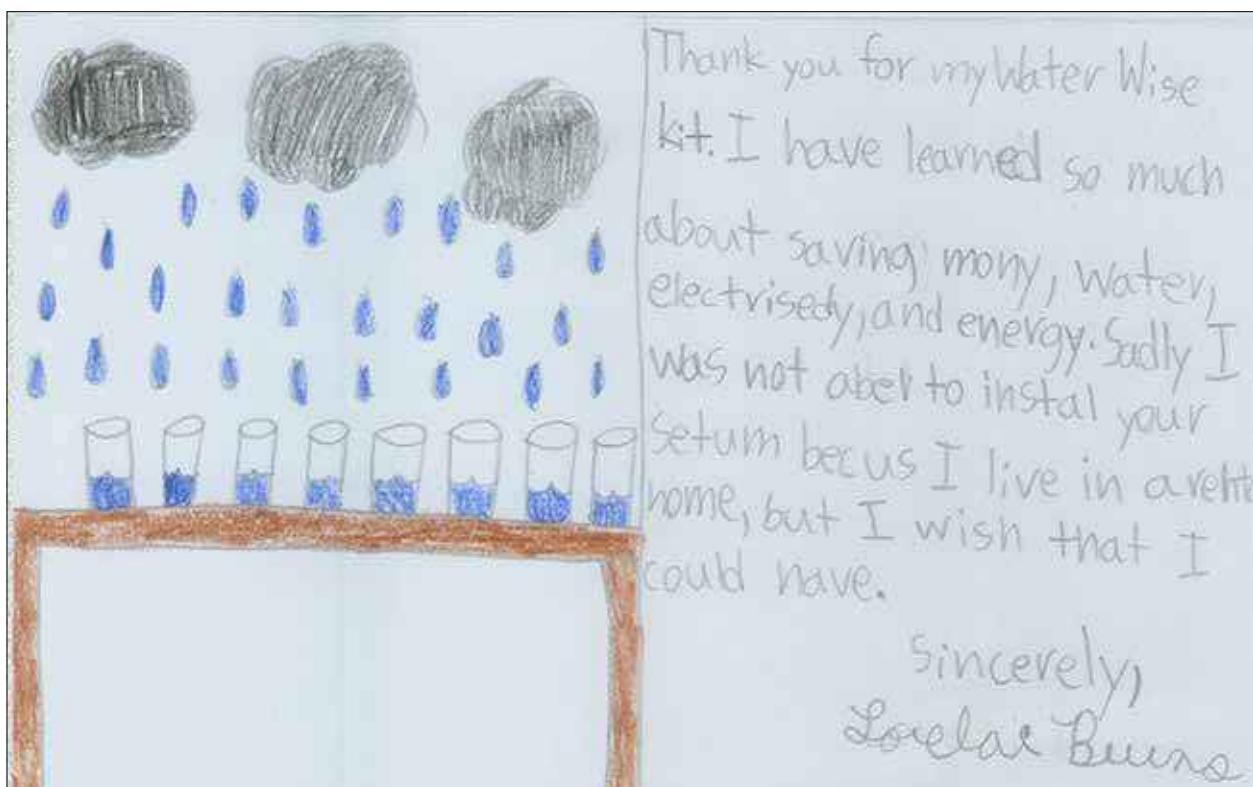 Thank you for my Water Wise
kit. I have learned so much
about saving mony, water,
electrisedy, and energy. Sadly I
was not abel to instal your
setum becus I live in a rent
home, but I wish that I
could have.
Sincerely,
Lorelai Burns